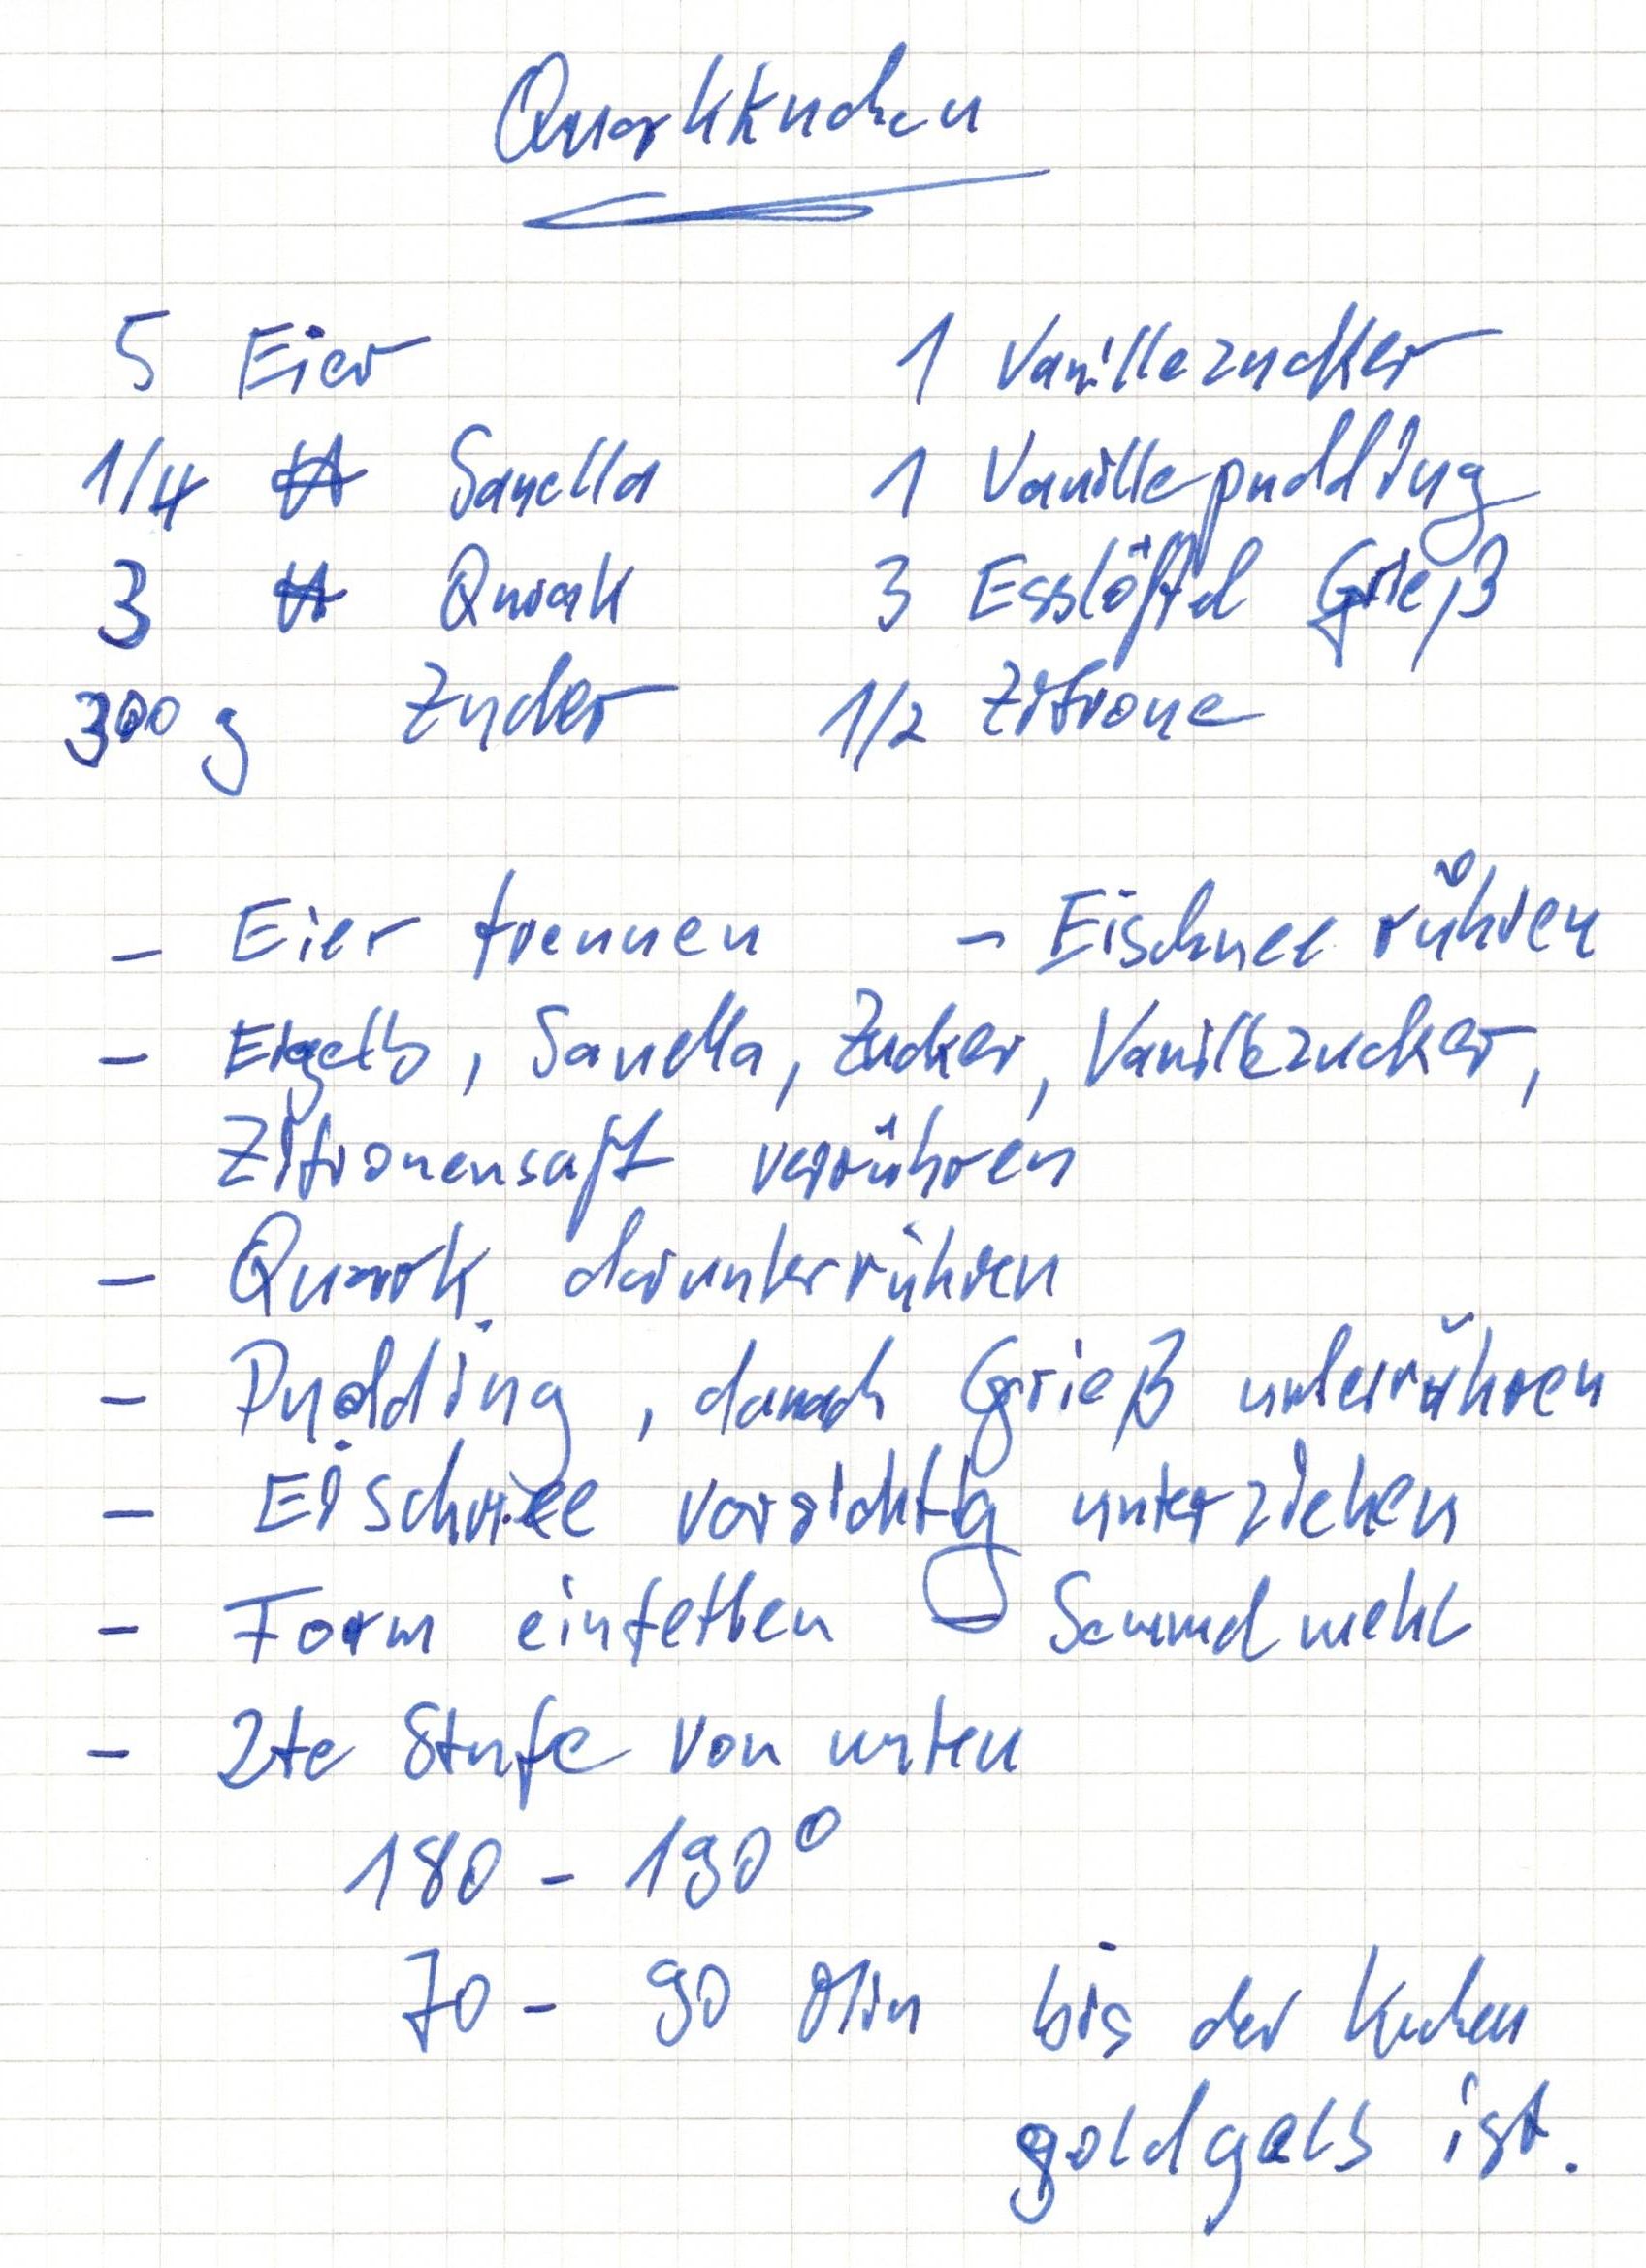 Quarkkuchen
5 Eier 1 Vanillezucker
1/4 ℔ Sanella 1 Vanillepudding
3 ℔ Quark 3 Esslöffel Grieß
300 g Zucker 1/2 Zitrone
- Eier trennen - Eischnee rühren
- Eigelb, Sanella, Zucker, Vanillezucker,
Zitronensaft verrühren
- Quark darunterrühren
- Pudding, danach Grieß unterrühren
- Eischnee vorsichtig unterziehen
- Form einfetten - Semmelmehl
- 2te Stufe von unten
180 - 190°
70 - 90 Min bis der Kuchen
goldgelb ist.